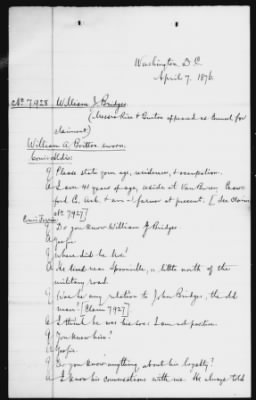 Washington D.C.
April 7, 1876.
No 7.928 William J. Bridges
( & appeared as counsel for
claimant)
William A Britton sworn.
Q Please state your age, residence, & occupation.
A I am 41 years of age, reside at Van Buren, Craw-
ford Co. Ark. & am a farmer at present. [See Claim
No. 7927]
Q Do you know William J. Bridges
A Yes sir.
Q Where did he live?
A He lived near a little north of the
military road.
Q Was he any relation to John Bridges, the old
man? [Claim 7927]
A I think he was his son: I am not positive.
Q You knew him?
A Yes sir.
Q Do you know anything about his loyalty?
A I know his connections with me. He always told